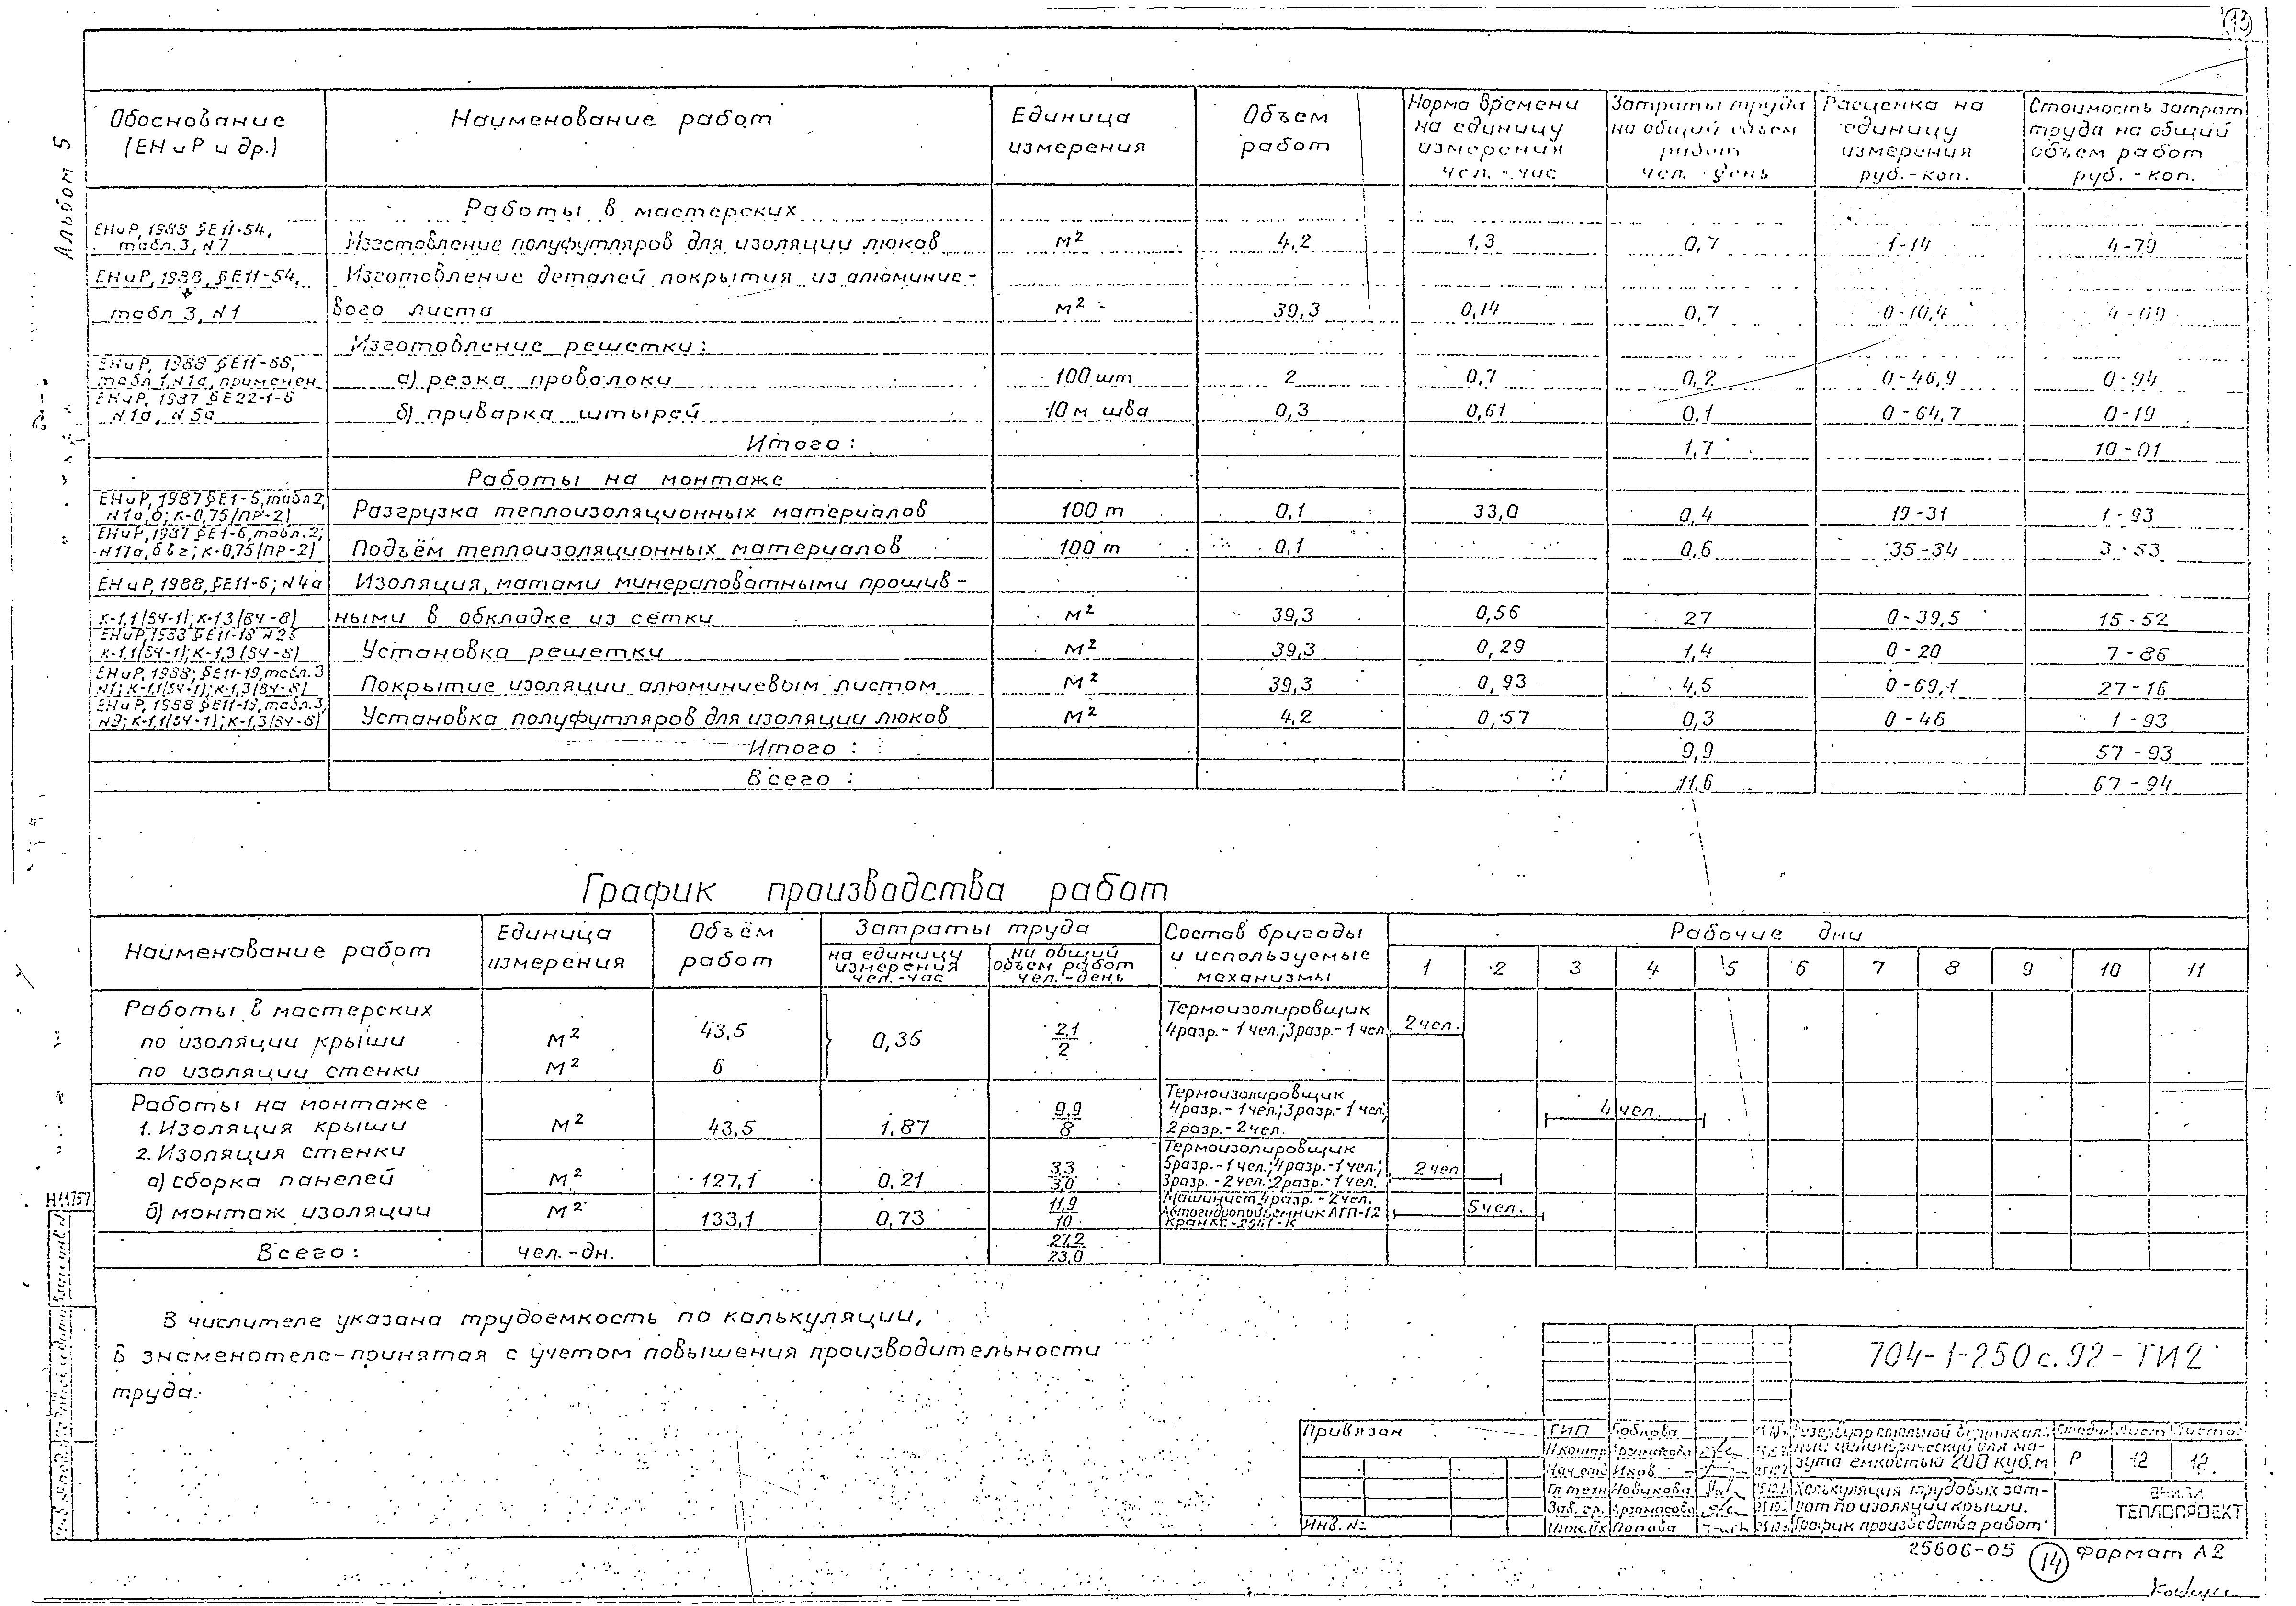 13
Альбом 5
Обоснование (ЕНиР и др.) Наименование работ Единица измерения Объем работ Норма времени на единицу измерения чел.-час Затраты труда на общий объем работ чел.-день Расценка на единицу измерения руб.-коп. Стоимость затрат труда на общий объем работ руб.-коп.
Работы в мастерских
ЕНиР, 1988 §Е11-54, табл.3, №7 Изготовление полуфутляров для изоляции люков м² 4,2 1,3 0,7 1-14 4-79
ЕНиР, 1988, §Е11-54, Изготовление деталей покрытия из алюминие-
табл 3, №1 вого листа м² 39,3 0,14 0,7 0-10,4 4-09
Изготовление решетки:
ЕНиР, 1988 §Е11-68, табл 1, №1а, применен а) резка проволоки 100 шт 2 0,7 0,2 0-46,9 0-94
ЕНиР, 1987 §Е22-1-6 №1а, №5а б) приварка штырей 10 м шва 0,3 0,61 0,1 0-64,7 0-19
Итого: 1,7 10-01
Работы на монтаже
ЕНиР, 1987 §Е1-5, табл.2, №1а,б; к-0,75/ПР-2) Разгрузка теплоизоляционных материалов 100 т 0,1 33,0 0,4 19-31 1-93
ЕНиР, 1987 §Е1-6, табл.2; №17а,б в г; к-0,75(ПР-2) Подъём теплоизоляционных материалов 100 т 0,1 0,6 35-34 3-53
ЕНиР, 1988, §Е11-6; №4а Изоляция, матами минераловатными прошив-
к-1,1(ВЧ-1); к-1,3(ВЧ-8) ными в обкладке из сетки м² 39,3 0,56 27 0-39,5 15-52
ЕНиР, 1988 §Е11-18 №2б к-1,1(ВЧ-1); к-1,3(ВЧ-8) Установка решетки м² 39,3 0,29 1,4 0-20 7-86
ЕНиР, 1988; §Е11-19, табл.3 №1; к-1,1(ВЧ-1); к-1,3(ВЧ-8) Покрытие изоляции алюминиевым листом м² 39,3 0,93 4,5 0-69,1 27-16
ЕНиР, 1988 §Е11-19, табл.3, №9; к-1,1(ВЧ-1); к-1,3(ВЧ-8) Установка полуфутляров для изоляции люков м² 4,2 0,57 0,3 0-46 1-93
Итого: 9,9 57-93
Всего: 11,6 67-94
График производства работ
Наименование работ Единица измерения Объём работ Затраты труда на единицу измерения чел.-час на общий объем работ чел.-день Состав бригады и используемые механизмы Рабочие дни
1 2 3 4 5 6 7 8 9 10 11
Работы в мастерских Термоизолировщик
по изоляции крыши м² 43,5 0,35 2,1/2 4разр.-1чел.; 3разр.-1чел. 2чел.
по изоляции стенки м² 6
Работы на монтаже Термоизолировщик
1. Изоляция крыши м² 43,5 1,87 9,9/8 4разр.-1чел.; 3разр.-1чел; 2разр.-2чел. 4чел.
2. Изоляция стенки Термоизолировщик
а) сборка панелей м² 127,1 0,21 3,3/3,0 5разр.-1чел.; 4разр.-1чел.; 3разр.-2чел.; 2разр.-1чел. 2чел
б) монтаж изоляции м² 133,1 0,73 11,9/10 Машинист 4разр.-2чел. Автогидроподъемник АГП-12 Кран КС-2561-К 5чел.
Всего: чел.-дн. 27,2/23,0
В числителе указана трудоемкость по калькуляции,
в знаменателе-принятая с учетом повышения производительности
труда.
Н11757
704-1-250с.92-ТИ2
Привязан
Инв. №
ГИП Бобкова
Н.контр Арзамасова
Нач.отд
Гл.техн Новикова
Зав.гр. Арзамасова
Попова
Резервуар стальной вертикаль-
ный цилиндрический для ма-
зута емкостью 200 куб.м
Стадия Лист Листов
Р 12 12
Калькуляция трудовых зат-
рат по изоляции крыши.
График производства работ
ВНИПИ
ТЕПЛОПРОЕКТ
25606-05 14 Формат А2